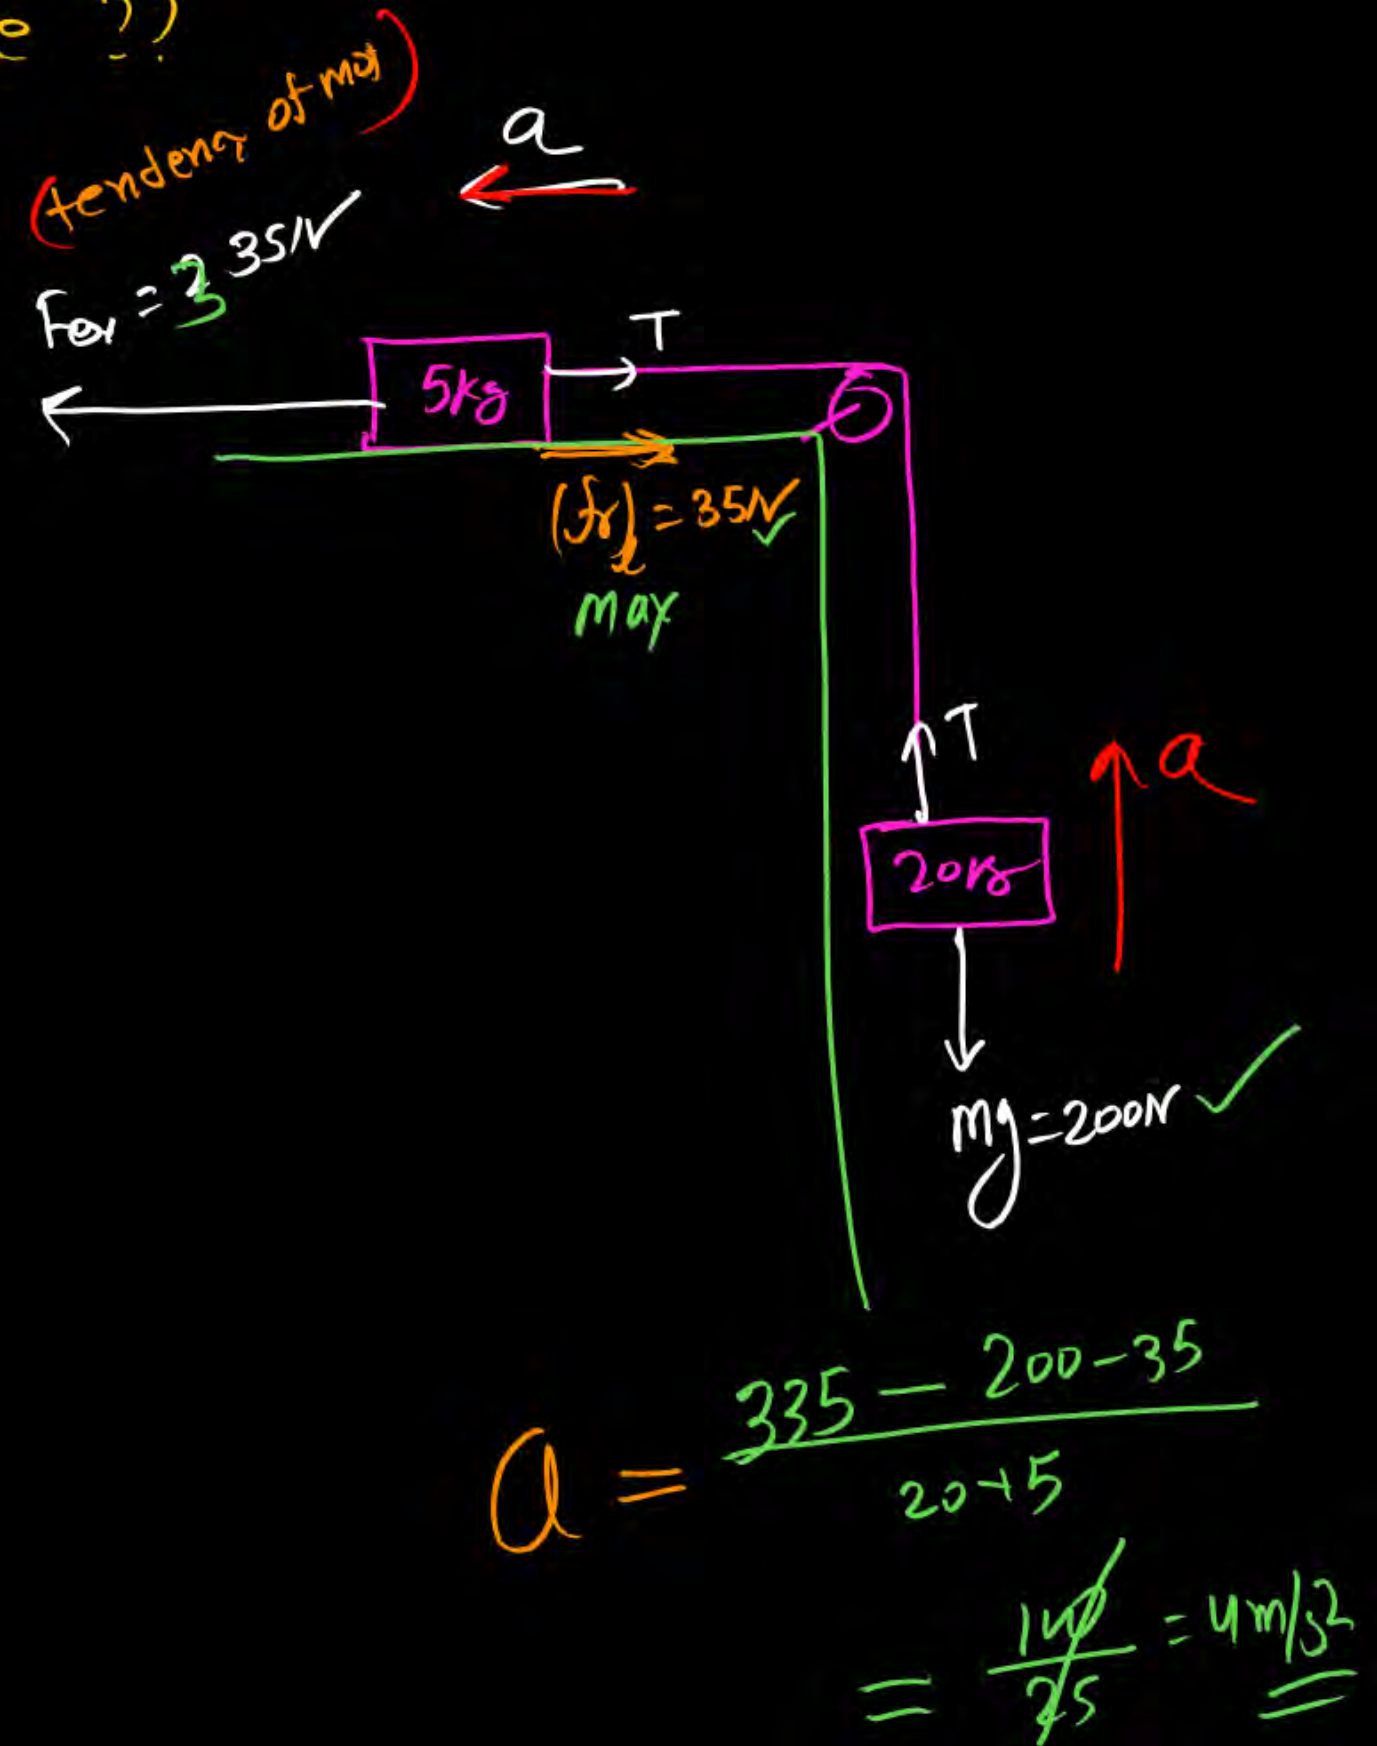 ??
(tendency of mot)
a
Fex = 335N
T
5kg
(fr)l = 35N
max
T
a
20kg
mg=200N
a = 335 - 200-35
20+5
= 100
25
= 4m/s2